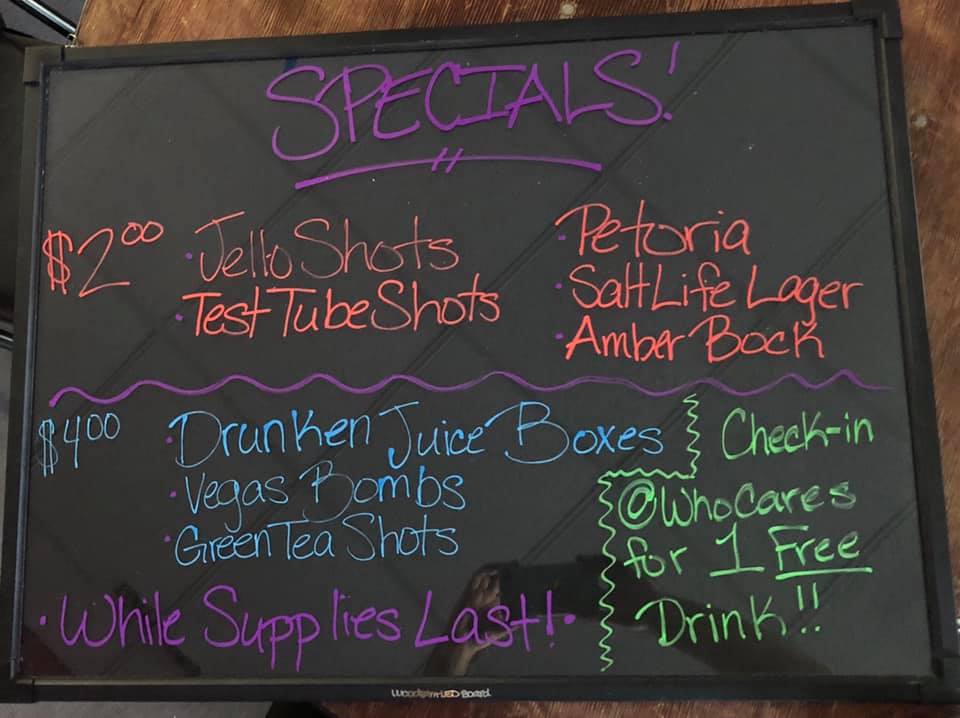 SPECIALS!
$2.00 · Jello Shots
· Test Tube Shots
· Petoria
· Salt Life Lager
· Amber Bock
$4.00 · Drunken Juice Boxes
· Vegas Bombs
· Green Tea Shots
Check-in
@WhoCares
for 1 Free
Drink!!
· While Supplies Last! ·